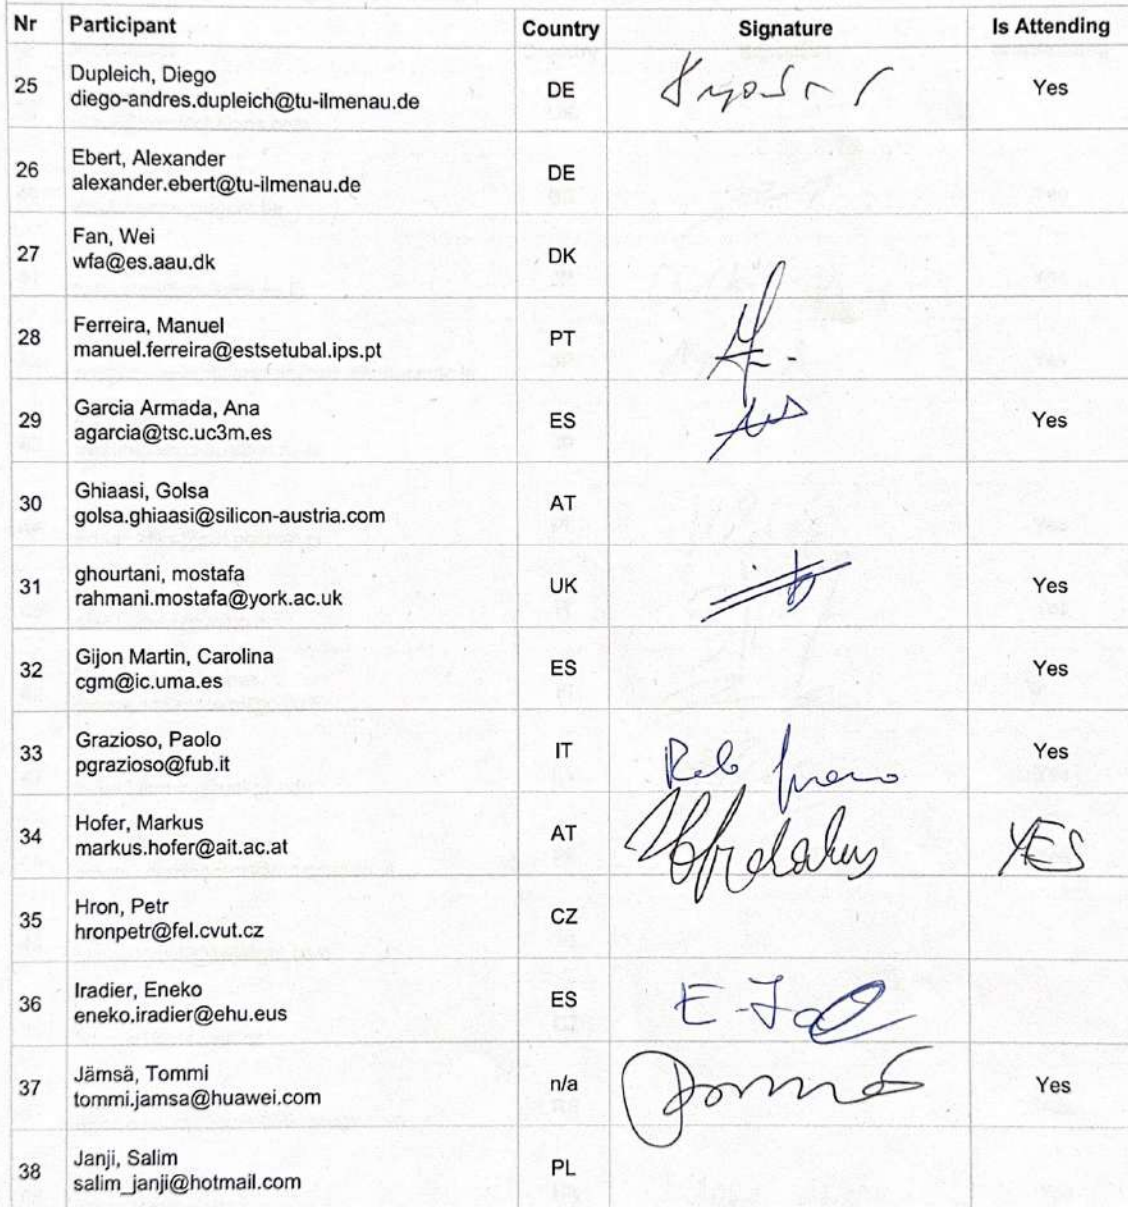 Nr Participant Country Signature Is Attending
25 Dupleich, Diego DE Yes
diego-andres.dupleich@tu-ilmenau.de
26 Ebert, Alexander DE
alexander.ebert@tu-ilmenau.de
27 Fan, Wei DK
wfa@es.aau.dk
28 Ferreira, Manuel PT
manuel.ferreira@estsetubal.ips.pt
29 Garcia Armada, Ana ES Yes
agarcia@tsc.uc3m.es
30 Ghiaasi, Golsa AT
golsa.ghiaasi@silicon-austria.com
31 ghourtani, mostafa UK Yes
rahmani.mostafa@york.ac.uk
32 Gijon Martin, Carolina ES Yes
cgm@ic.uma.es
33 Grazioso, Paolo IT Yes
pgrazioso@fub.it
34 Hofer, Markus AT YES
markus.hofer@ait.ac.at
35 Hron, Petr CZ
hronpetr@fel.cvut.cz
36 Iradier, Eneko ES
eneko.iradier@ehu.eus
37 Jämsä, Tommi n/a Yes
tommi.jamsa@huawei.com
38 Janji, Salim PL
salim_janji@hotmail.com